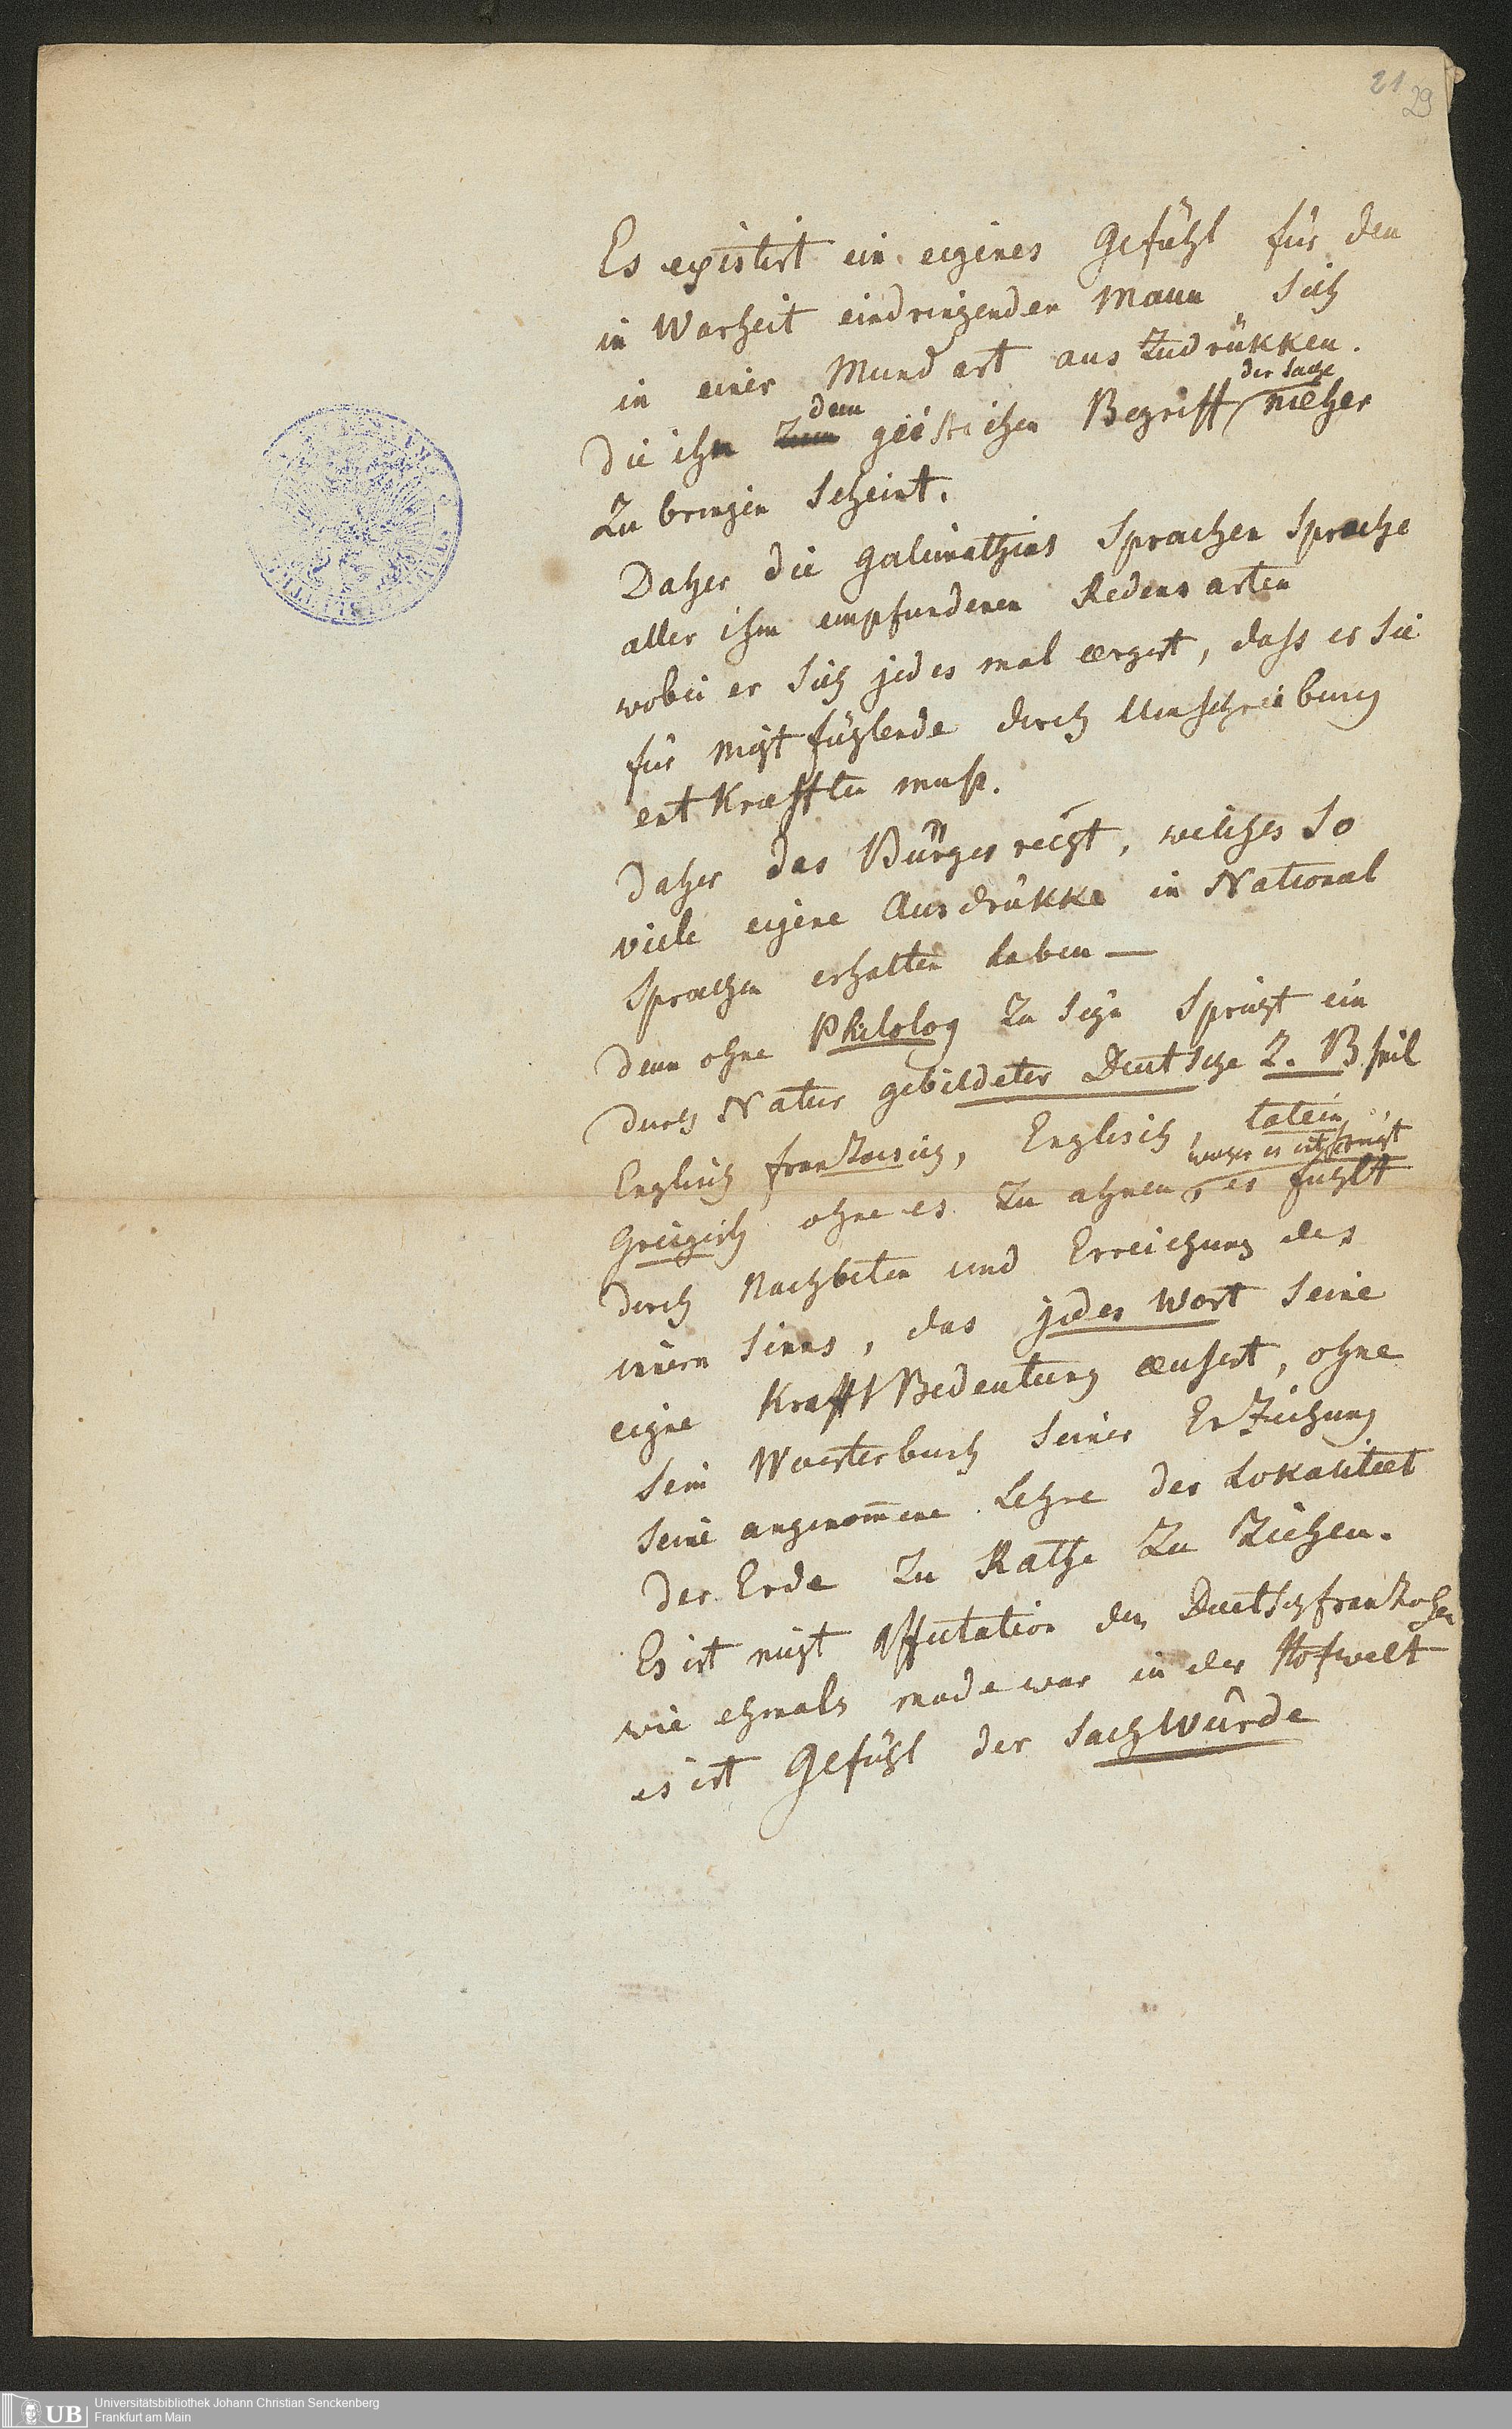 21
29
Es existirt ein eigenes Gefühl für den
in Warheit eindringenden Mann sich
in einer Mundart auszudrükken.
der Sache
dem
die ihn zum geistichen Begriff næher
zu bringen scheint.
Daher die galimathias Sprachen Sprache
aller ihm empfundenen Redensarten
wobei er sich jedes mal ærgert, dass er sie
für nicht fühlende durch Umschreibung
entkræfften muss.
Daher das Bürgerrecht, welches so
viele eigene Ausdrükke in National
Sprachen erhalten haben —
denn ohne Philolog zu seyn spricht ein
durch Natur gebildeter Deutsche z. Bspiel
Englisch franzœsich, Englisch, latein
Griegisch ohne es zu ahnen, er fühlt
durch Nachbeten und Erreichung des
innern Sinns, das jedes Wort seine
eigne Krafft Bedeutung æusert, ohne
sein Wœrterbuch seiner Erziehung
seine angenom̅ene Lehre der Lokalitæt
der Erde zu Rathe zu ziehen.
Es ist nicht Affectation des Deutschfranzosen
wie ehmals mode war in der Hofwelt
es ist Gefühl der Sachwürde
UB
Universitätsbibliothek Johann Christian Senckenberg
Frankfurt am Main